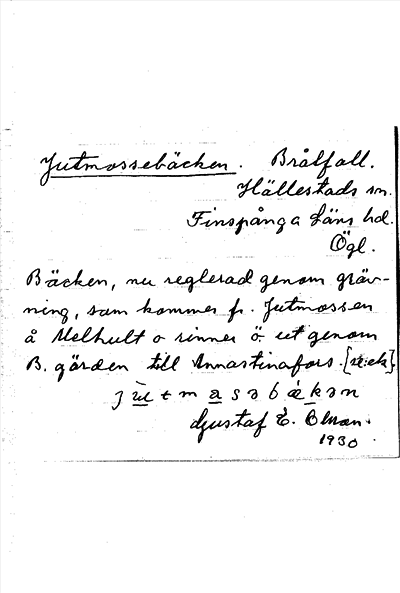 Jutmossebäcken. Brålfall.
Hällestads sn.
Finspånga läns hd.
Ögl.
Bäcken, nu reglerad genom gräv-
ning, som kommer fr. Jutmossen
å Melhult o rinner ö. ut genom
B. gärden till Annastinafors.
jutmasəbækən
Gustaf E. Olsson.
1930